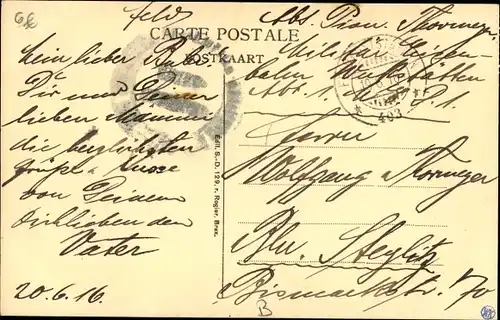 Feld
CARTE POSTALE
POSTKAART
Abs. Pion. Thormeyer
Militär Eisen-
bahn Werkstätten
Abt. 1
403
Mein lieber Bubi!
Dir und Deiner
lieben Mammi
die herzlichsten
Grüße u. Küsse
von Deinem
Dich liebenden
Vater
20.6.16.
Edit. S.-D. 129, r. Rogier, Brux.
Herrn
Wolfgang Thormeyer
Bln. Steglitz
Bismarckstr. 70
B